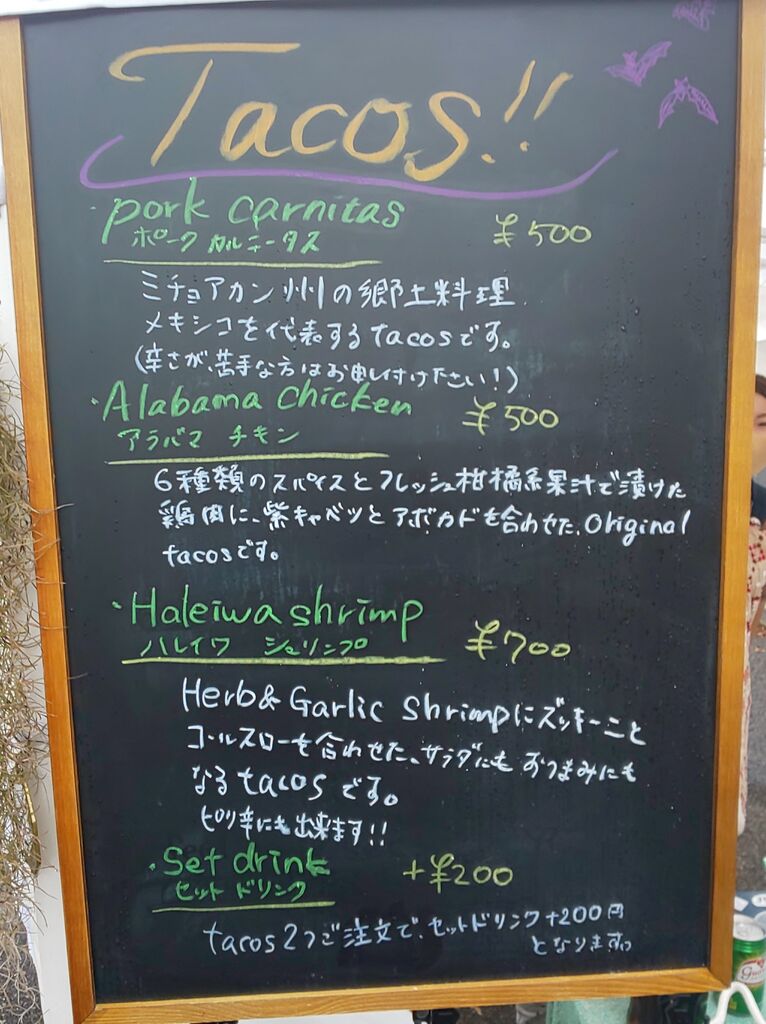 Tacos!!
・pork carnitas ¥500
ポーク カルニータス
ミチョアカン州の郷土料理
メキシコを代表するtacosです。
(辛さが、苦手な方はお申し付け下さい！)
・Alabama chicken ¥500
アラバマ チキン
6種類のスパイスとフレッシュ柑橘系果汁で漬けた
鶏肉に、紫キャベツとアボカドも合わせた、original
tacosです。
・Haleiwa shrimp ¥700
ハレイワ シュリンプ
Herb& Garlic shrimpにズッキーニと
コールスローを合わせた、サラダにもおつまみにも
なるtacosです。
ピリ辛にも出来ます!!
・Set drink +¥200
セット ドリンク
tacos2つご注文で、セットドリンク+200円
となります。